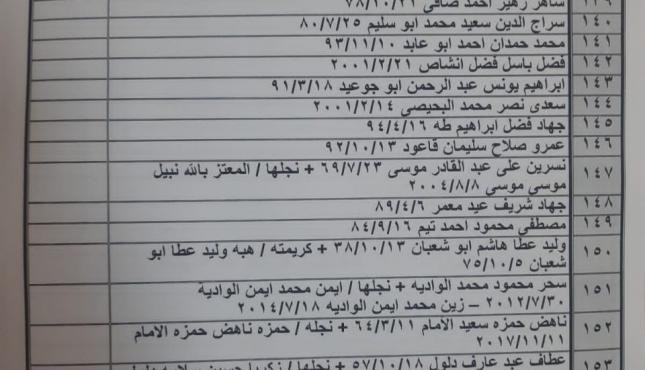 ١٣٩ شاهر زهير احمد صافي ٧٨/١٠/٢١
١٤٠ سراج الدين سعيد محمد ابو سليم ٨٠/٧/٢٥
١٤١ محمد حمدان احمد ابو عابد ٩٣/١١/١٠
١٤٢ فضل باسل فضل انشاص ٢٠٠١/٢/٢١
١٤٣ ابراهيم يونس عبد الرحمن ابو جوعيد ٩١/٣/١٨
١٤٤ سعدي نصر محمد البحيصي ٢٠٠١/٢/١٤
١٤٥ جهاد فضل ابراهيم طه ٩٤/٤/١٦
١٤٦ عمرو صلاح سليمان قاعود ٩٢/١٠/١٣
١٤٧ نسرين على عبد القادر موسى ٦٩/٧/٢٣ + نجلها / المعتز بالله نبيل
موسى موسى ٢٠٠٤/٨/٨
١٤٨ جهاد شريف عيد معمر ٨٩/٤/٦
١٤٩ مصطفى محمود احمد تيم ٨٤/٩/١٦
١٥٠ وليد عطا هاشم ابو شعبان ٣٨/١٠/١٣ + كريمته / هبه وليد عطا ابو
شعبان ٧٥/١٠/٥
١٥١ سحر محمود محمد الواديه + نجلها / ايمن محمد ايمن الوادية
٢٠١٢/٧/٣٠ – زين محمد ايمن الواديه ٢٠١٤/٧/١٨
١٥٢ ناهض حمزه سعيد الامام ٦٤/٣/١١ + نجله / حمزه ناهض حمزه الامام
٢٠١٧/١١/١١
١٥٣ عطاف عبد عارف دلول ٥٧/١٠/١٨ + نجلها / زكريا